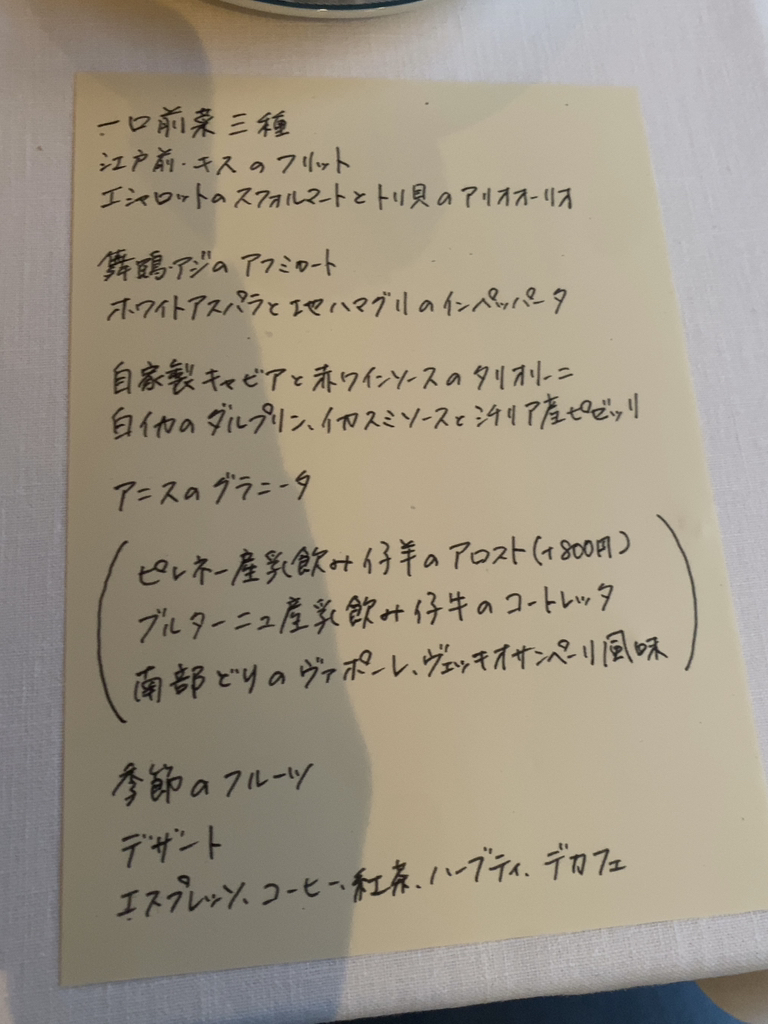 一口前菜三種
江戸前・キスのフリット
エシャロットのスフォルマートとトリ貝のアリオオーリオ
舞鶴・アジのアフミカート
ホワイトアスパラと地ハマグリのインペッパータ
自家製キャビアと赤ワインソースのタリオリーニ
白イカのダルプリン、イカスミソースとシチリア産ピゼッリ
アニスのグラニータ
ピレネー産乳飲み仔羊のアロスト(+800円)
ブルターニュ産乳飲み仔牛のコートレッタ
南部どりのヴァポーレ、ヴェッキオサンペーリ風味
季節のフルーツ
デザート
エスプレッソ、コーヒー、紅茶、ハーブティ、デカフェ